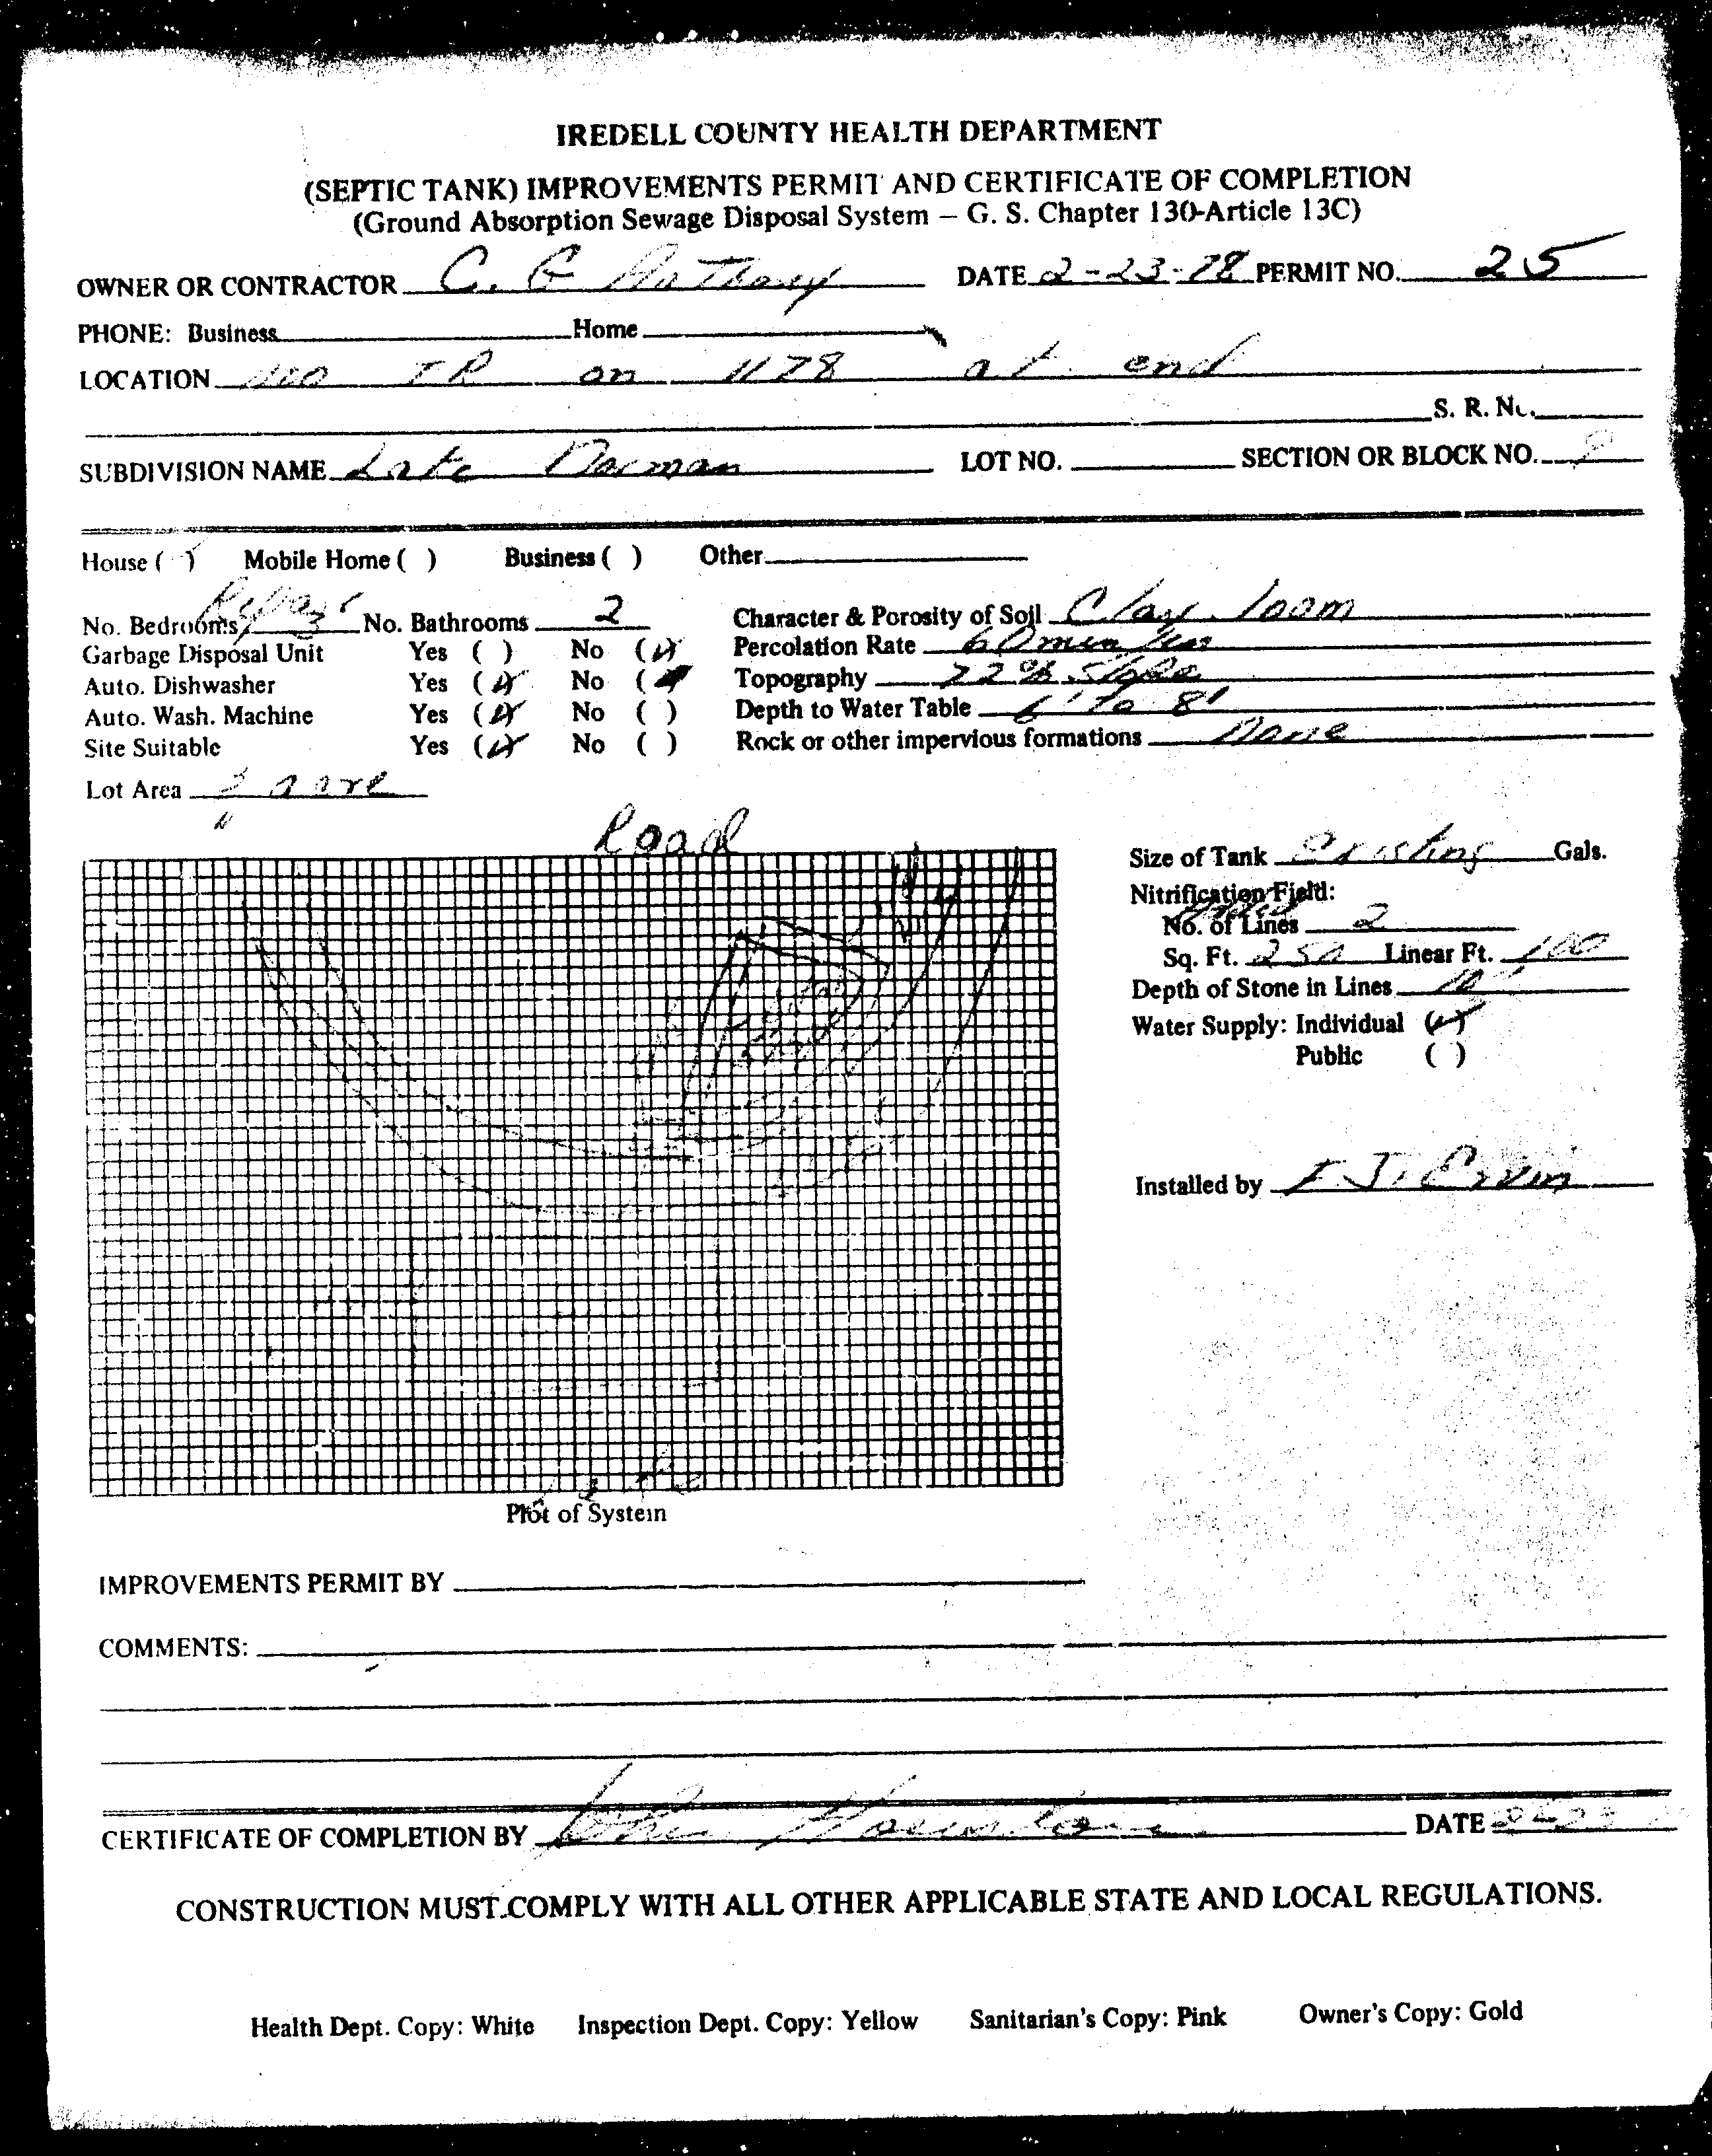 IREDELL COUNTY HEALTH DEPARTMENT
(SEPTIC TANK) IMPROVEMENTS PERMIT AND CERTIFICATE OF COMPLETION
(Ground Absorption Sewage Disposal System – G. S. Chapter 130-Article 13C)
OWNER OR CONTRACTOR C. G DATE 2-23-78 PERMIT NO. 25
PHONE: Business Home
LOCATION TR on 1178 at end
S. R. No.
SUBDIVISION NAME Lake Norman LOT NO. SECTION OR BLOCK NO.
House ( ) Mobile Home ( ) Business ( ) Other
Repair
No. Bedrooms 3 No. Bathrooms 2 Character & Porosity of Soil Clay loam
Garbage Disposal Unit Yes ( ) No (✓) Percolation Rate 60 min
Auto. Dishwasher Yes (✓) No ( ) Topography 22% Slope
Auto. Wash. Machine Yes (✓) No ( ) Depth to Water Table 6' To 8'
Site Suitable Yes (✓) No ( ) Rock or other impervious formations None
Lot Area acre
Road
Size of Tank Existing Gals.
Nitrification Field:
No. of Lines 2
Sq. Ft. 250 Linear Ft. 100
Depth of Stone in Lines
Water Supply: Individual (✓)
Public ( )
Installed by J. Ervin
Plot of System
IMPROVEMENTS PERMIT BY
COMMENTS:
CERTIFICATE OF COMPLETION BY DATE
CONSTRUCTION MUST COMPLY WITH ALL OTHER APPLICABLE STATE AND LOCAL REGULATIONS.
Health Dept. Copy: White Inspection Dept. Copy: Yellow Sanitarian's Copy: Pink Owner's Copy: Gold